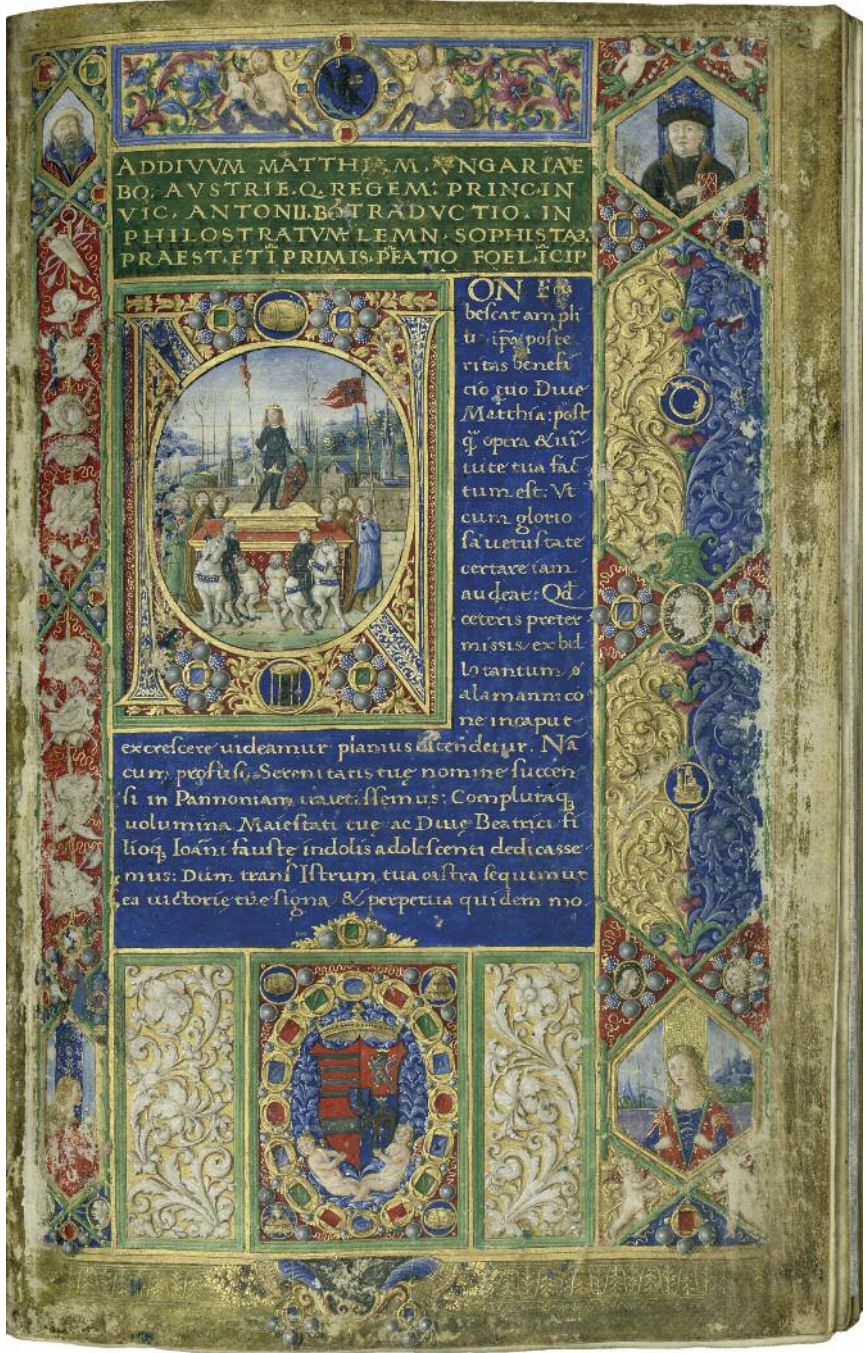 ADDIVVM MATTHIAM. VNGARIAE
BO. AVSTRIE. Q. REGEM: PRINC. IN
VIC. ANTONII. BO. TRADVCTIO. IN
PHILOSTRATVM LEMN. SOPHISTA
PRAEST. ETI PRIMIS. PFATIO FOELICIP
NON
bescat ampli
ipa poste
ritas benefi
cio quo Diue
Matthia: post
q̄ opera & uir
tute tua fac
tum est: Vt
cum glorio
sa uetustate
certare iam
audeat: Qd
ceteris preter
missis ex
lo tantum
alamanni co
ne in caput
excrescere uideamur planius ostendetur. Nā
cum Serenitatis tuę nomine succen
si in Pannoniam uenissemus: Compluraq,
uolumina Maiestati tuę ac Diuę Beatrici fi
lioq, Ioāni faustę indolis adolescenti dedicasse
mus: Dum trans Istrum tua castra sequimur
ea uictorię tuę signa & perpetua quidem mo